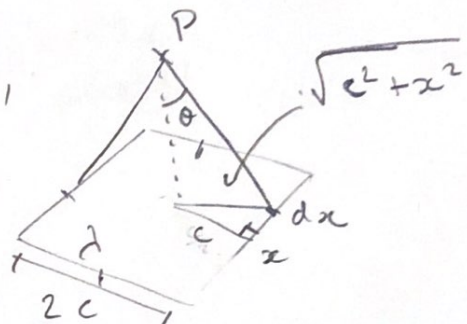 P
θ
√(c² + x²)
dx
c
x
λ
2c